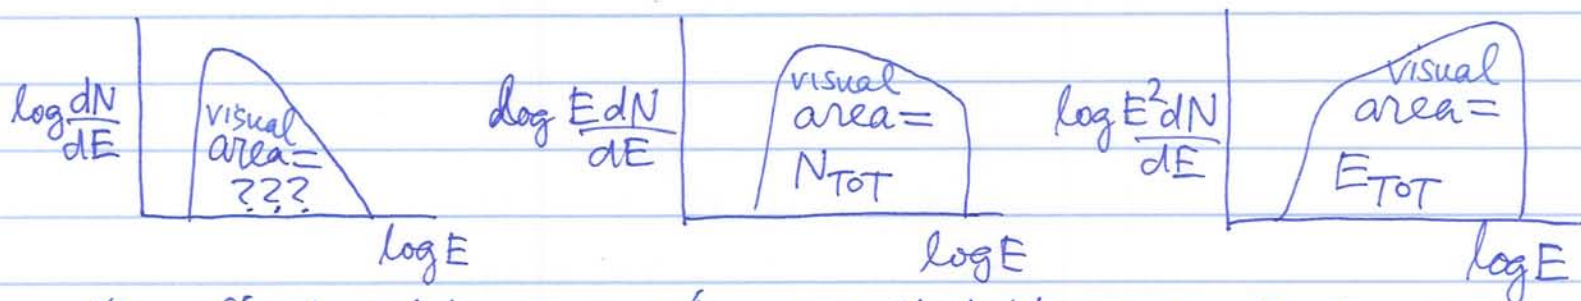 log dN/dE
visual
area=
???
log E
log E dN/dE
visual
area=
N_TOT
log E
log E² dN/dE
visual
area=
E_TOT
log E